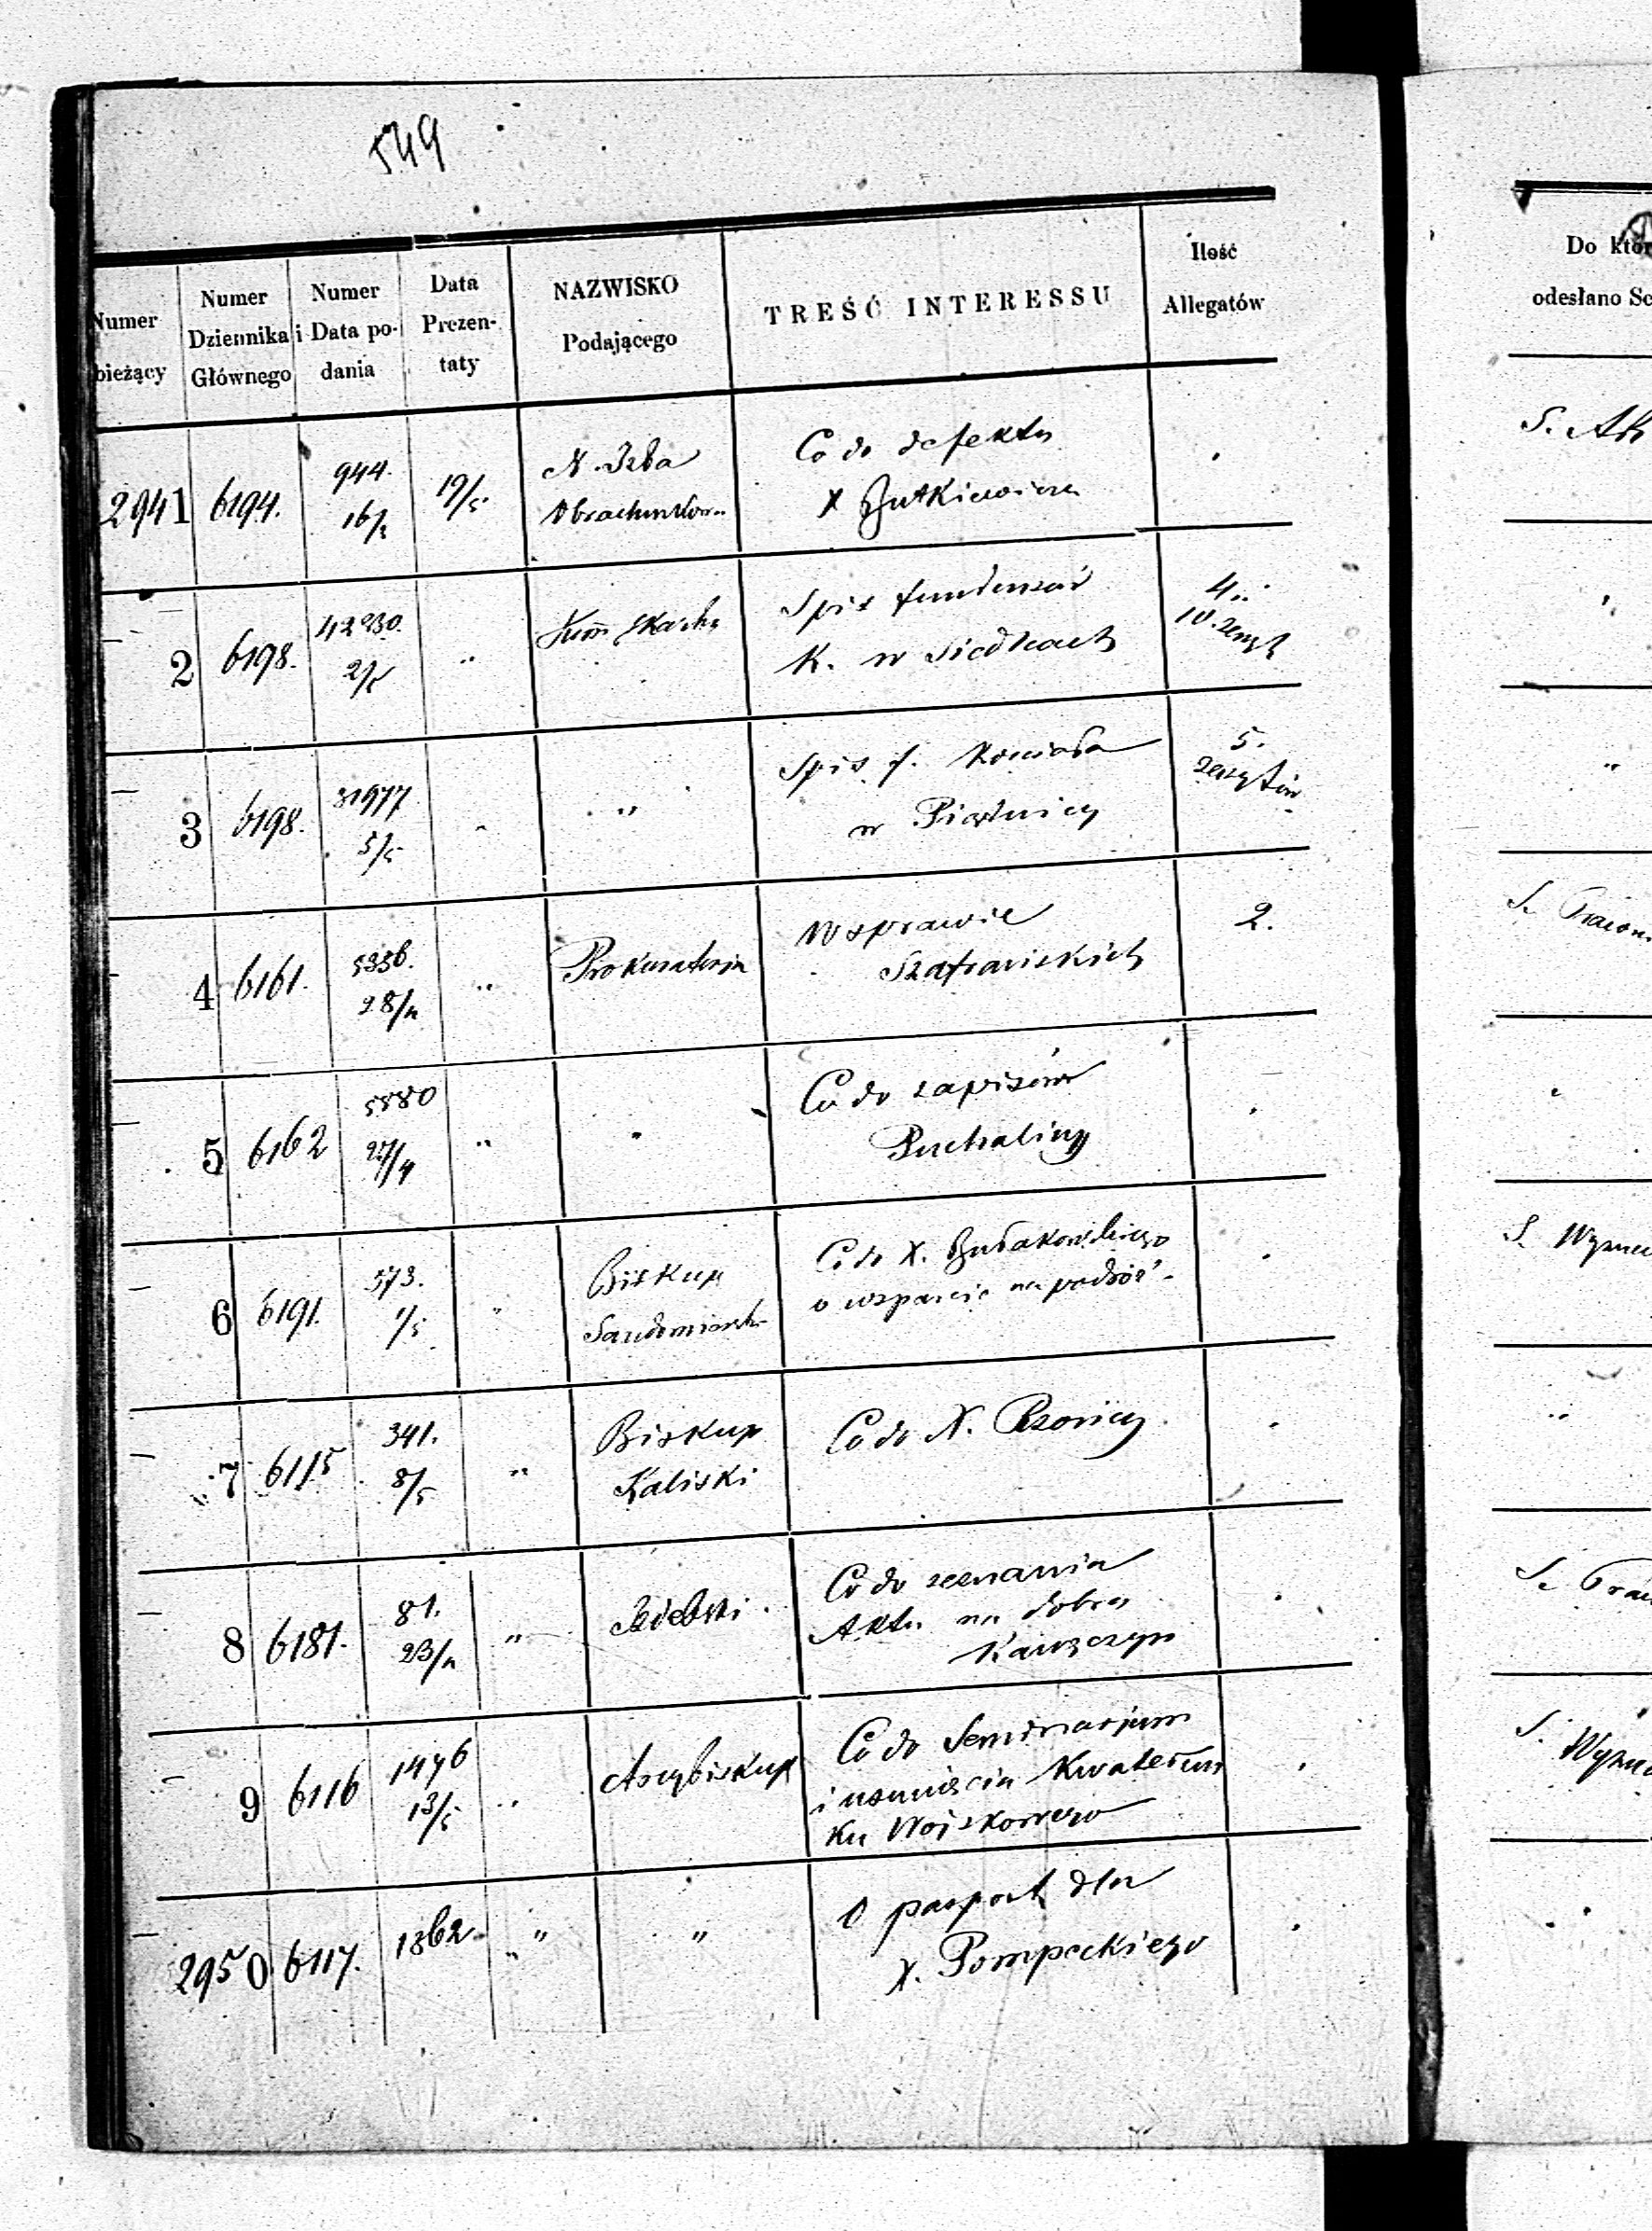 549
Numer bieżący
Numer Dziennika Głównego
Numer i Data podania
Data Prezentaty
NAZWISKO Podającego
TREŚĆ INTERESSU
Ilość Allegatów
Do któr
odesłano Se
2941 6194. 944. 19/5. N. Izba Co do defektu .
16/5 Obrachunkow. X Butkiewicza
2 6198. 2/5 " Kom Skarbu Spis funduszów 4.
K. w Siedlcach 10. zeszyt
3 6198. 31977 " " Spis f. Kościoła 5.
5/5 w Piątnicy zeszytów
4 6161. 5336. " Prokuratorja W sprawie 2.
28/4 Szafrańskich
5 6162 5880 " " Co do zapisów .
27/4 Puchaliny
6 6191. 573. " Biskup Co do X. Budakowskiego .
1/5 Sandomiersk. o wsparcie na podróż.
7 6115 341. " Biskup Co do N. .
8/5 Kaliski
8 6181. 81. " Co do zeznania .
23/4 Aktu na dobra
9 6116 1476 " Arcybiskup Co do Seminarjum .
13/5 i usunięcia Kwaterun
ku Wojskowego
2950 6117. 1362. " " O paszport dla .
X. Pompeckiego
S.
S.
S. Wyzna
S.
S. Wyzna